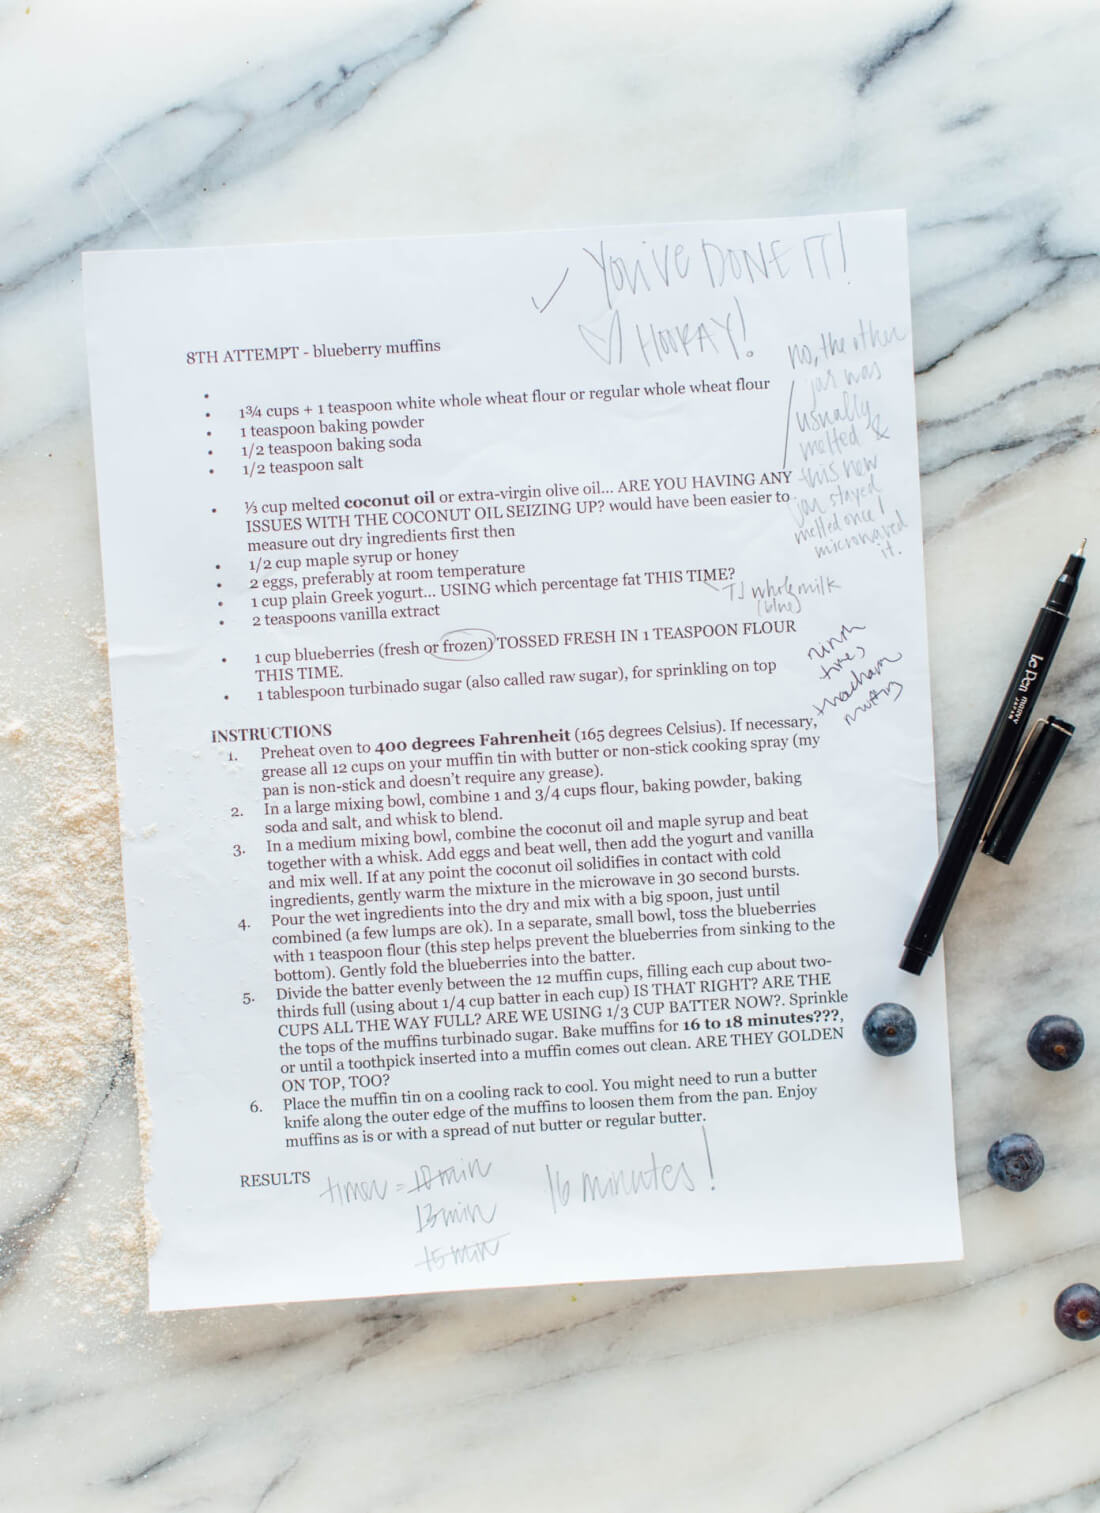 You've DONE IT!
HOORAY!
8TH ATTEMPT - blueberry muffins
1¾ cups + 1 teaspoon white whole wheat flour or regular whole wheat flour
1 teaspoon baking powder
1/2 teaspoon baking soda
1/2 teaspoon salt
no, the other
jar was
usually
melted &
this new
jar stayed
melted once I
microwaved
it.
⅓ cup melted coconut oil or extra-virgin olive oil... ARE YOU HAVING ANY
ISSUES WITH THE COCONUT OIL SEIZING UP? would have been easier to
measure out dry ingredients first then
1/2 cup maple syrup or honey
2 eggs, preferably at room temperature
1 cup plain Greek yogurt... USING which percentage fat THIS TIME?
TJ whole milk
(blue)
2 teaspoons vanilla extract
1 cup blueberries (fresh or frozen) TOSSED FRESH IN 1 TEASPOON FLOUR
THIS TIME.
1 tablespoon turbinado sugar (also called raw sugar), for sprinkling on top
INSTRUCTIONS
1. Preheat oven to 400 degrees Fahrenheit (165 degrees Celsius). If necessary,
grease all 12 cups on your muffin tin with butter or non-stick cooking spray (my
pan is non-stick and doesn't require any grease).
2. In a large mixing bowl, combine 1 and 3/4 cups flour, baking powder, baking
soda and salt, and whisk to blend.
3. In a medium mixing bowl, combine the coconut oil and maple syrup and beat
together with a whisk. Add eggs and beat well, then add the yogurt and vanilla
and mix well. If at any point the coconut oil solidifies in contact with cold
ingredients, gently warm the mixture in the microwave in 30 second bursts.
4. Pour the wet ingredients into the dry and mix with a big spoon, just until
combined (a few lumps are ok). In a separate, small bowl, toss the blueberries
with 1 teaspoon flour (this step helps prevent the blueberries from sinking to the
bottom). Gently fold the blueberries into the batter.
5. Divide the batter evenly between the 12 muffin cups, filling each cup about two-
thirds full (using about 1/4 cup batter in each cup) IS THAT RIGHT? ARE THE
CUPS ALL THE WAY FULL? ARE WE USING 1/3 CUP BATTER NOW?. Sprinkle
the tops of the muffins turbinado sugar. Bake muffins for 16 to 18 minutes???,
or until a toothpick inserted into a muffin comes out clean. ARE THEY GOLDEN
ON TOP, TOO?
6. Place the muffin tin on a cooling rack to cool. You might need to run a butter
knife along the outer edge of the muffins to loosen them from the pan. Enjoy
muffins as is or with a spread of nut butter or regular butter.
RESULTS
timer = 10 min
13 min
15 min
16 minutes!
le Pen
marvy
JAPAN